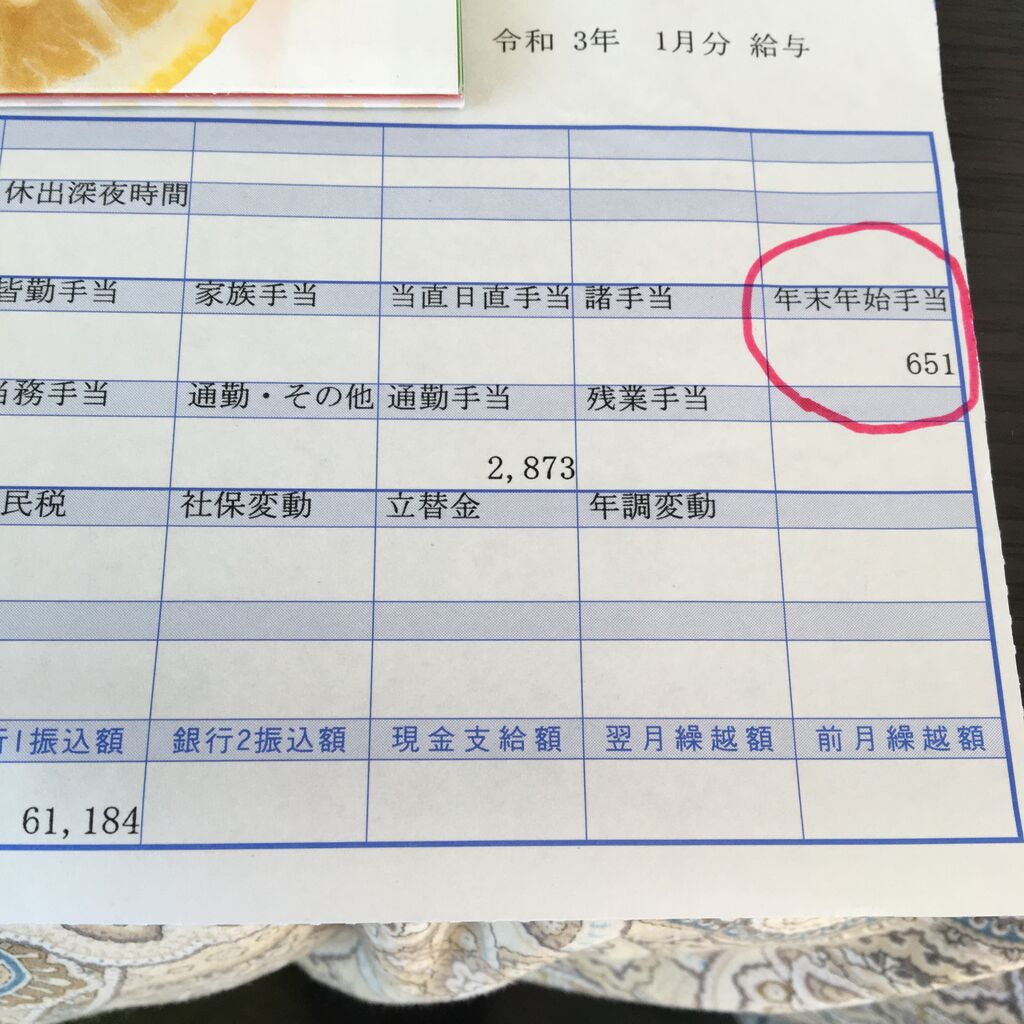 令和 3年 1月分 給与
休出深夜時間
皆勤手当 家族手当 当直日直手当 諸手当 年末年始手当
651
務手当 通勤・その他 通勤手当 残業手当
2,873
民税 社保変動 立替金 年調変動
行1振込額 銀行2振込額 現金支給額 翌月繰越額 前月繰越額
61,184